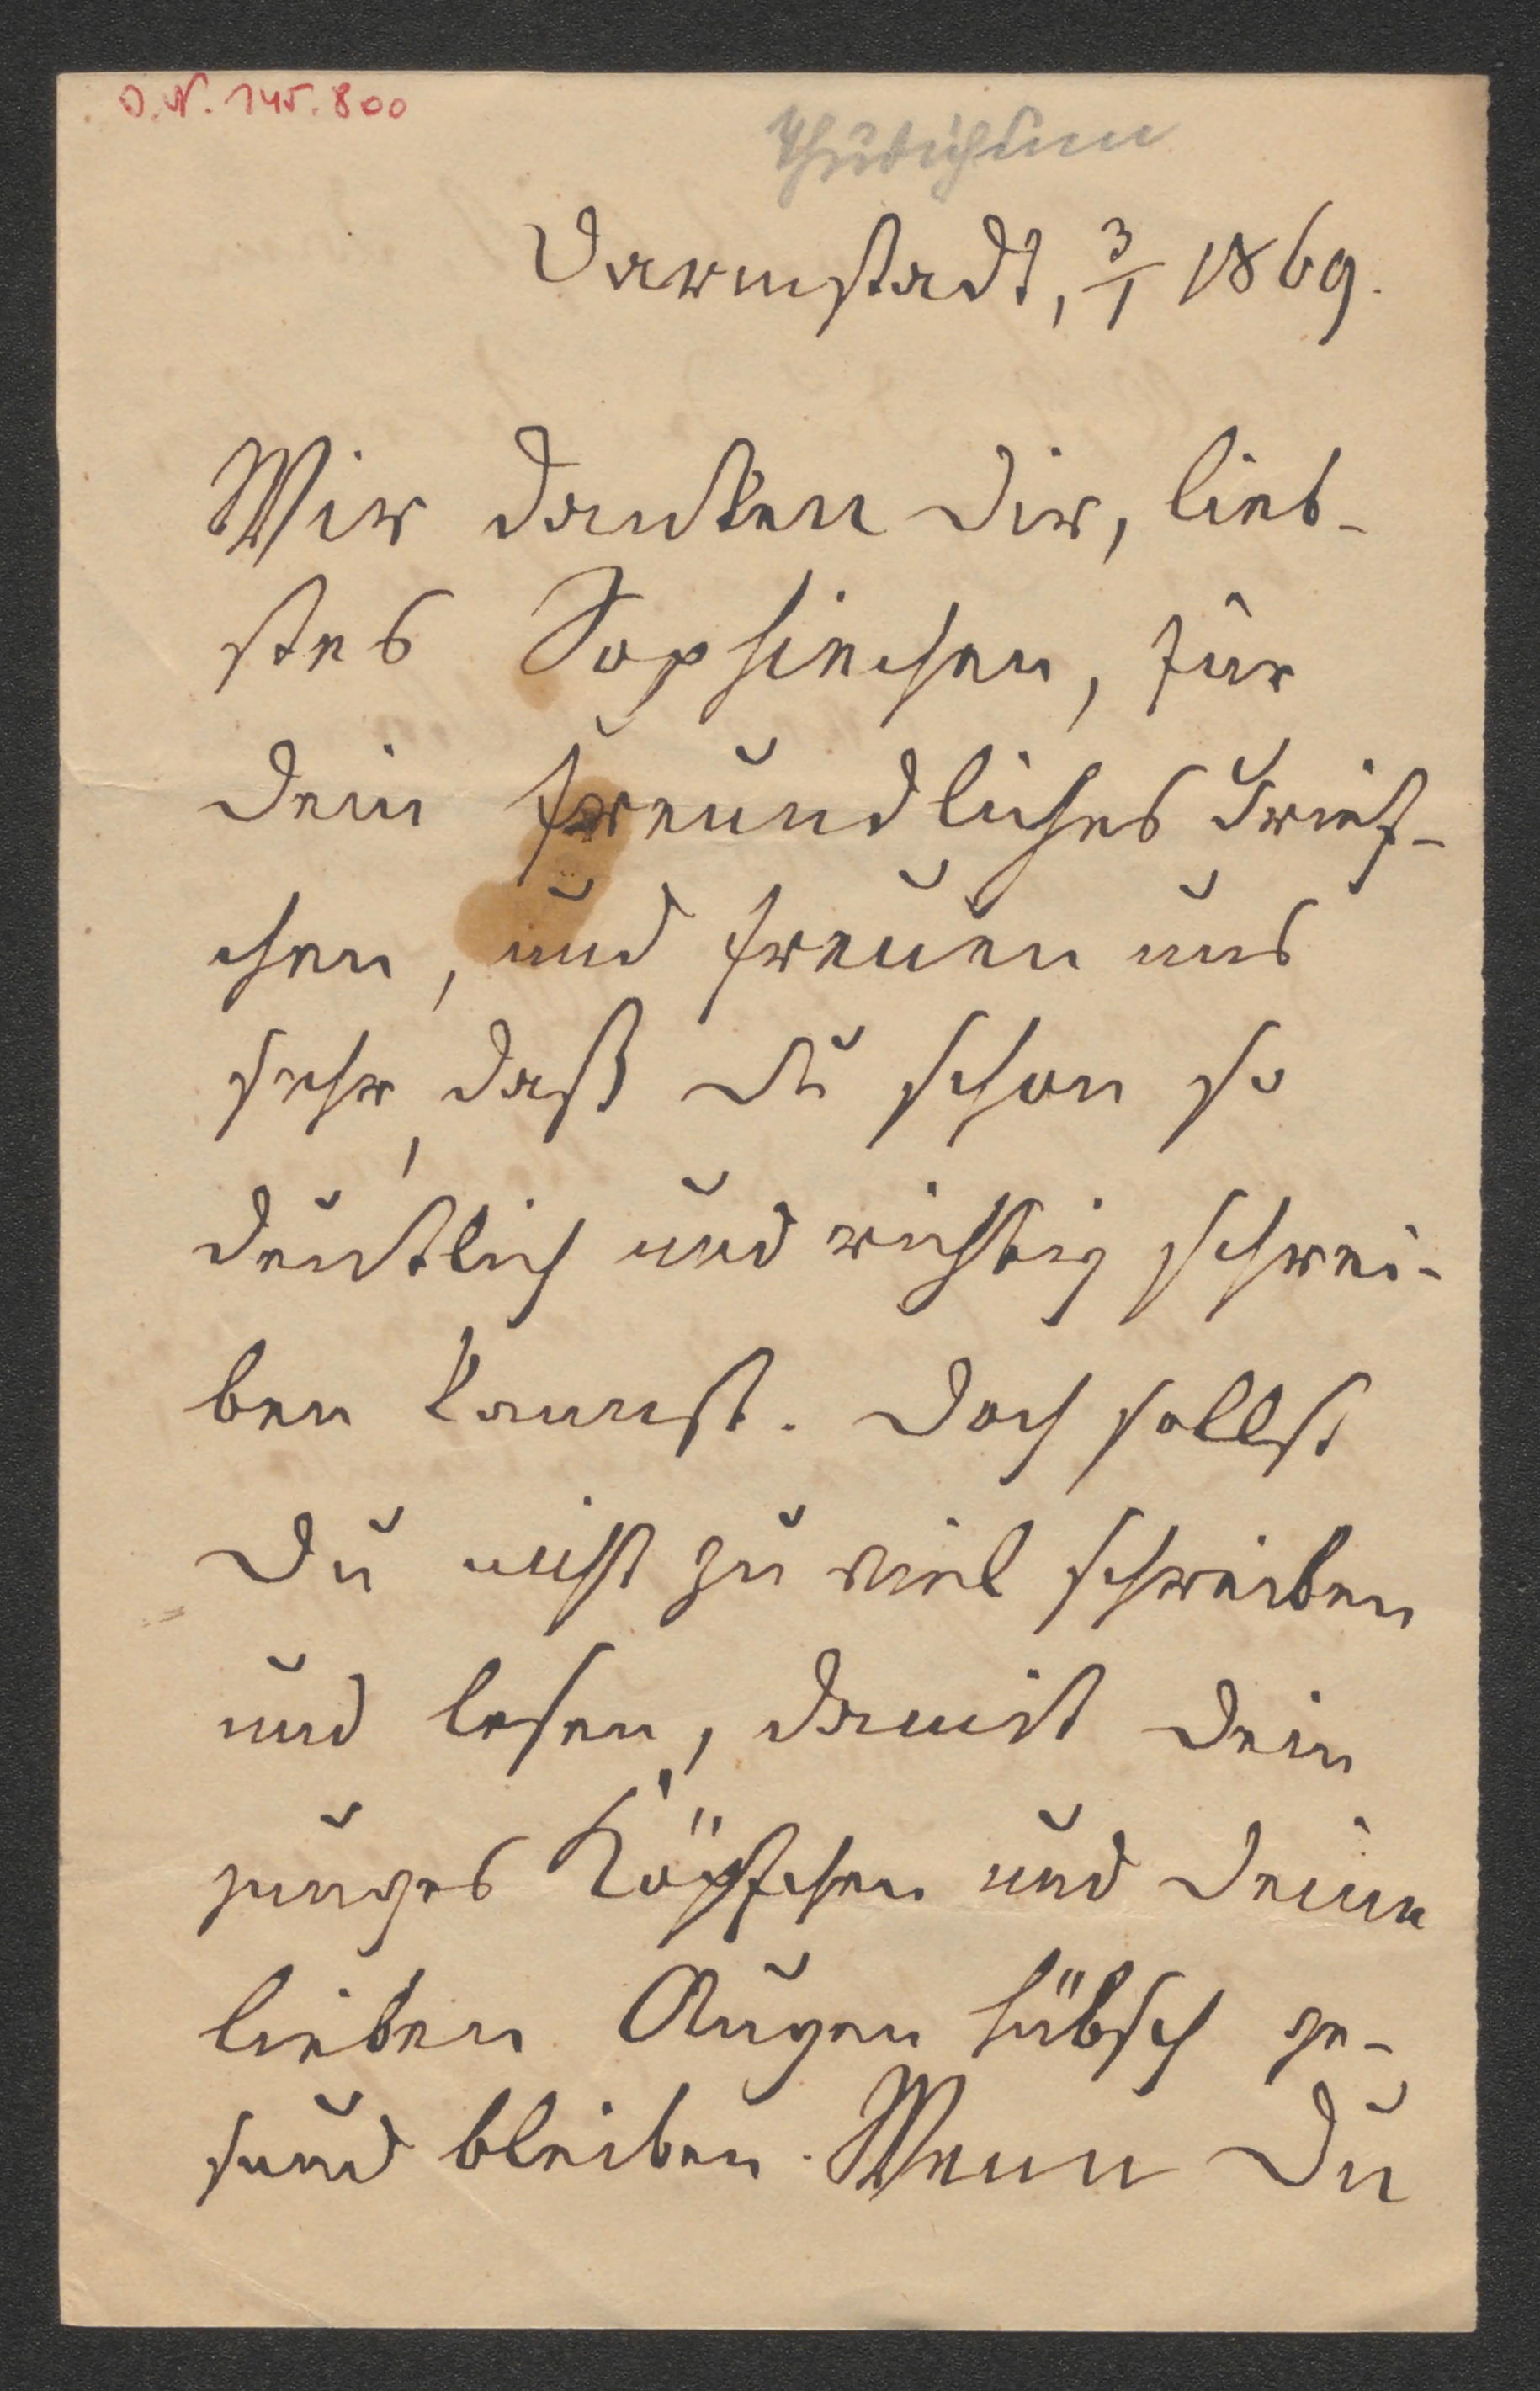 O.N. 145.800
Thudichum
Darmstadt, 3/1 1869.
Wir danken Dir, lieb-
stes Sophiechen, für
Dein freundliches Brief-
chen, und freuen uns
sehr, daß Du schon so
deutlich und richtig schrei-
ben kannst. Doch sollst
Du nicht zu viel schreiben
und lesen, damit Dein
junges Köpfchen und Deine
lieben Augen hübsch ge-
sund bleiben. Wenn Du